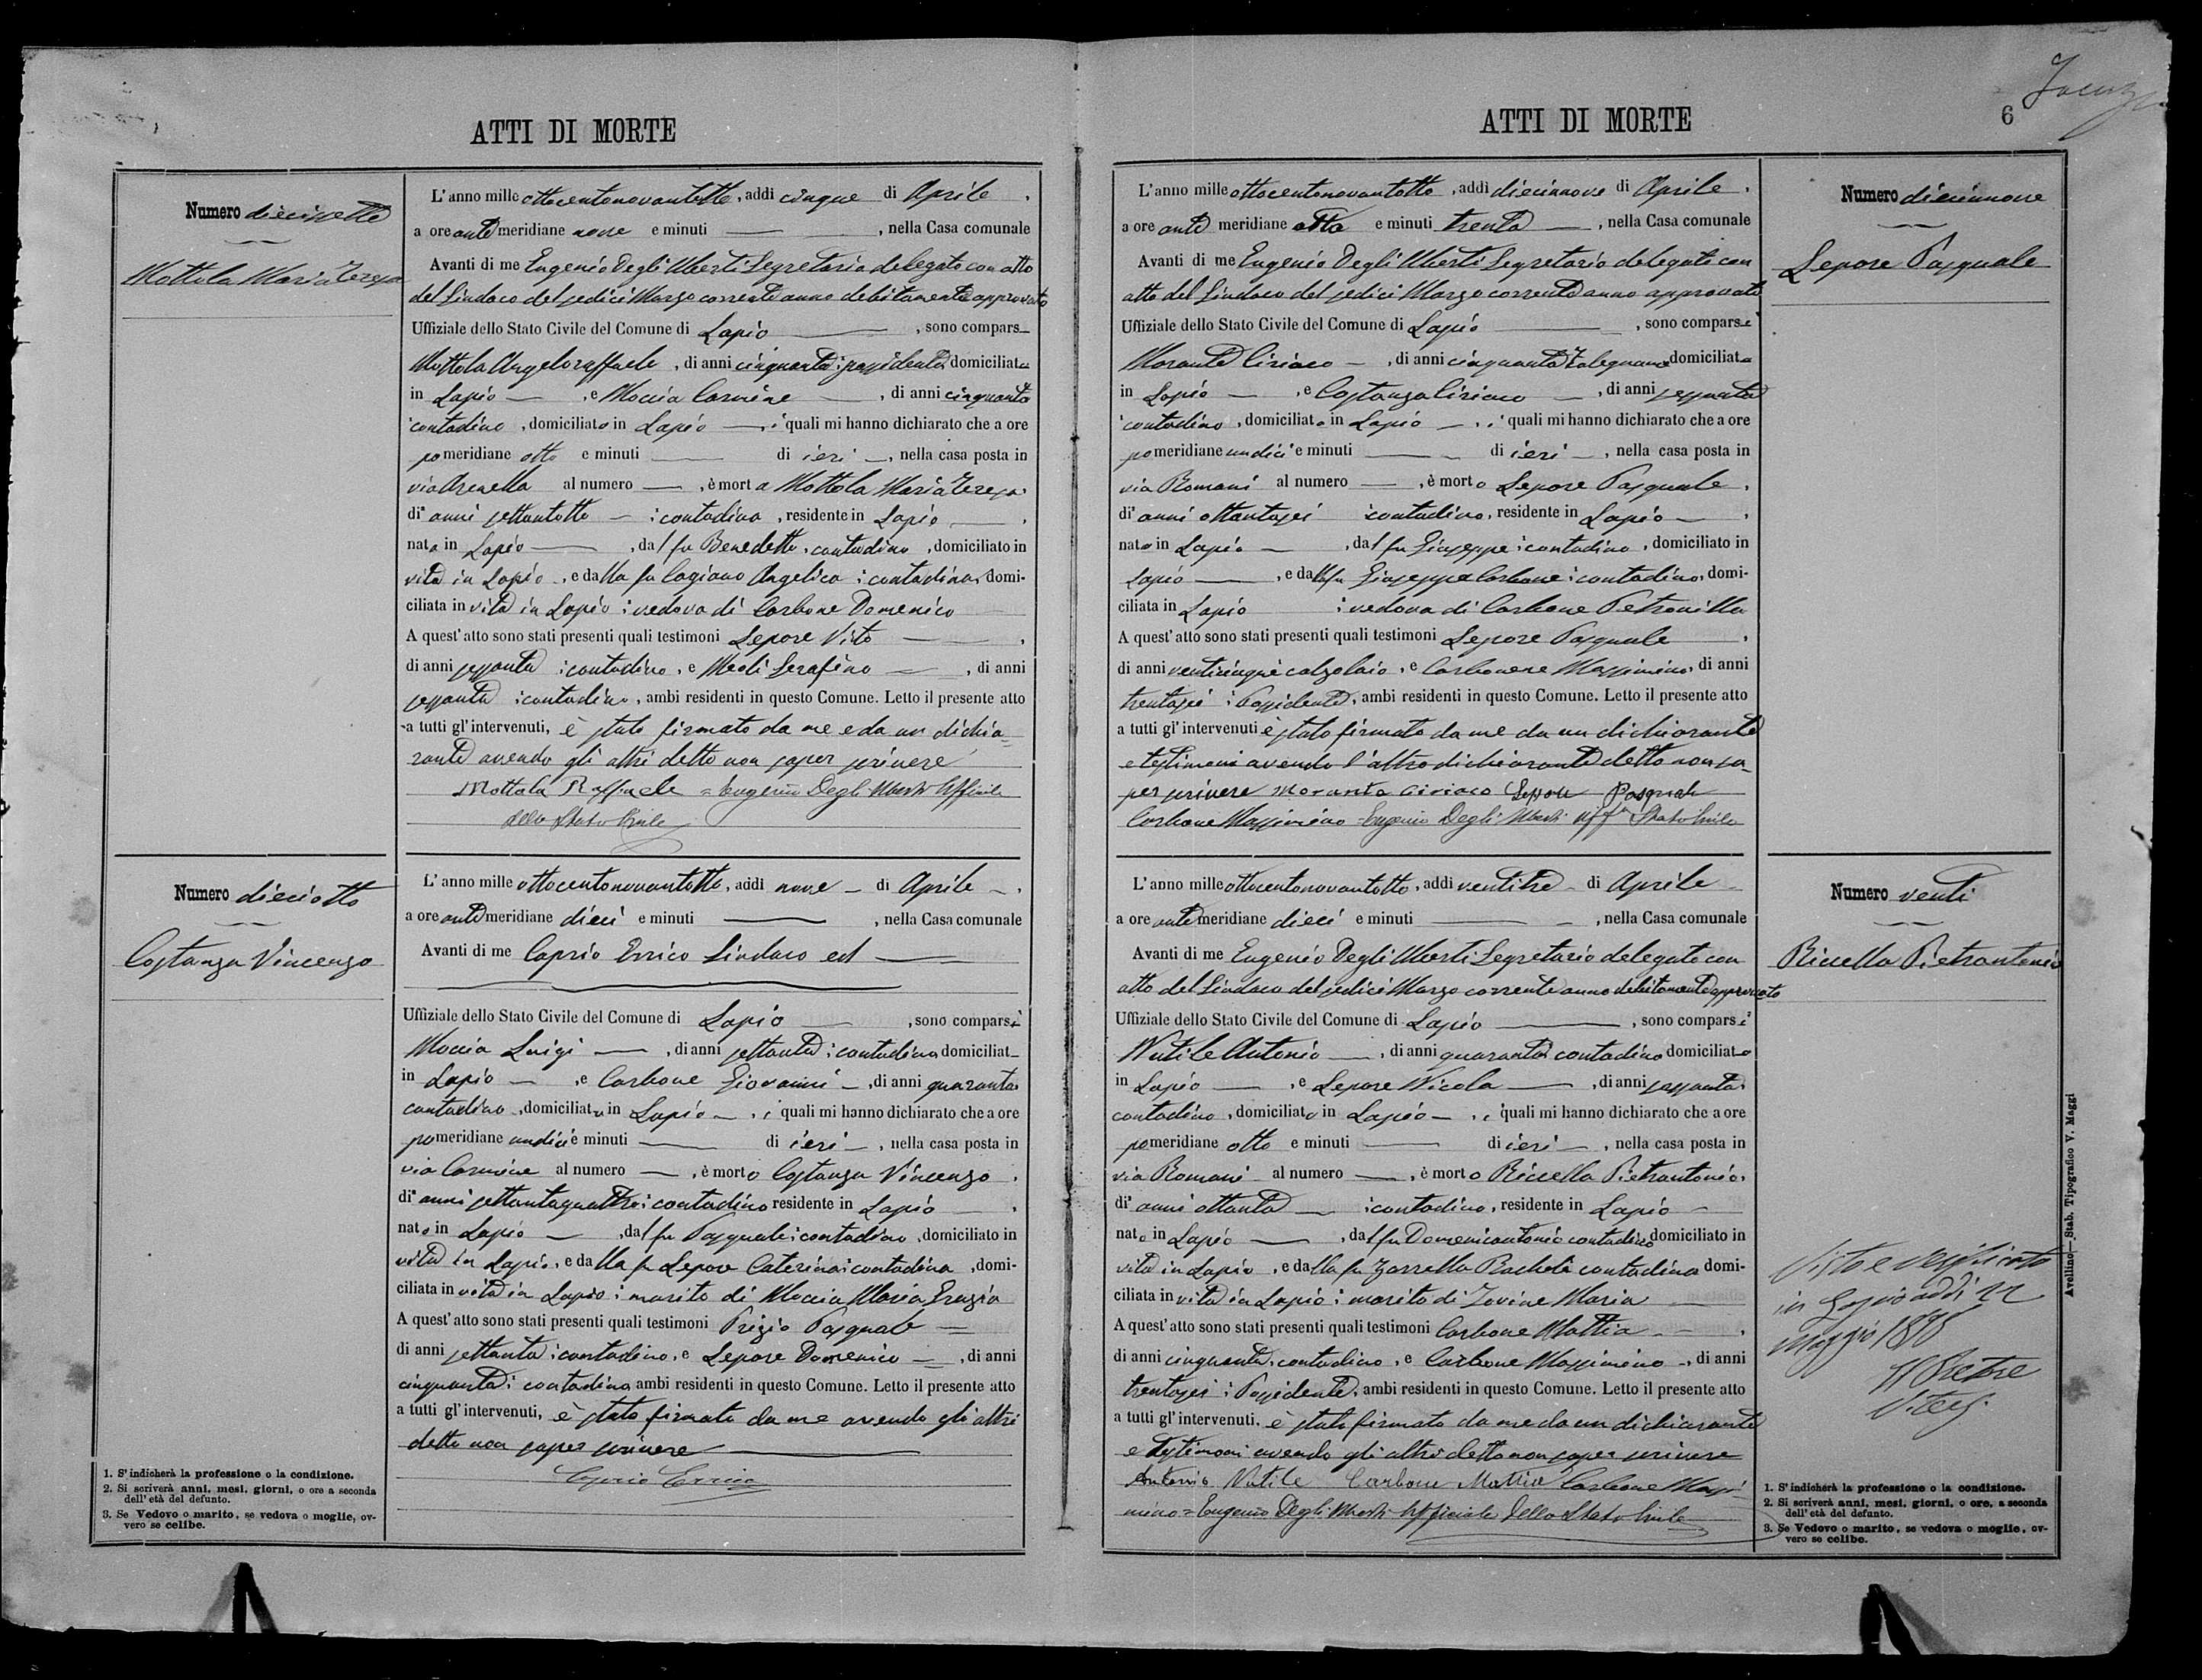 ATTI DI MORTE
Numero diecisette
Mottola Maria Teresa
L'anno mille ottocentonovantotto, addi cinque di Aprile,
a ore antimeridiane nove e minuti —, nella Casa comunale
Avanti di me Eugenio Degli Uberti Segretario delegato con atto
del Sindaco del sedici Marzo corrente anno debitamente approvato
Uffiziale dello Stato Civile del Comune di Lapio —, sono compars—
Mottola Angeloraffaele, di anni cinquanta; possidente, domiciliato
in Lapio —, e Moccia Carmine —, di anni cinquanta
contadino, domiciliato in Lapio —, i quali mi hanno dichiarato che a ore
pomeridiane otto e minuti — di ieri —, nella casa posta in
via Arenella al numero —, è morta Mottola Maria Teresa
di anni settantotto — contadina, residente in Lapio —,
nata in Lapio —, dal fu Benedetto, contadino, domiciliato in
vita in Lapio, e dalla fu Cagiano Angelica; contadina, domi-
ciliata in vita in Lapio; vedova di Carbone Domenico
A quest'atto sono stati presenti quali testimoni Lepore Vito —,
di anni sessanta contadino, e Meoli Serafino —, di anni
sessanta contadino, ambi residenti in questo Comune. Letto il presente atto
a tutti gl'intervenuti, è stato firmato da me e da un dichia=
rante avendo gli altri detto non saper scrivere
Mottola Raffaele = Eugenio Degli Uberti Ufficiale
dello Stato Civile
Numero dieciotto
Costanza Vincenzo
L'anno mille ottocentonovantotto, addì nove — di Aprile —.
a ore antimeridiane dieci e minuti —, nella Casa comunale
Avanti di me Caprio Errico Sindaco ed —
Uffiziale dello Stato Civile del Comune di Lapio —, sono comparsi
Moccia Luigi —, di anni settanta; contadino domiciliat—
in Lapio —, e Carbone Giovanni —, di anni quaranta
contadino, domiciliato in Lapio —, i quali mi hanno dichiarato che a ore
pomeridiane undici e minuti — di ieri —, nella casa posta in
via Carmine al numero —, è morto Costanza Vincenzo.
di anni settantaquattro; contadino residente in Lapio —.
nato in Lapio —, dal fu Pasquale; contadino, domiciliato in
vita in Lapio, e dalla fu Lepore Caterina; contadina, domi-
ciliata in vita in Lapio; marito di Moccia Maria Grazia
A quest'atto sono stati presenti quali testimoni Prizio Pasquale —
di anni settanta; contadino, e Lepore Domenico —, di anni
cinquanta; contadino ambi residenti in questo Comune. Letto il presente atto
a tutti gl'intervenuti, è stato firmato da me avendo gli altri
detto non saper scrivere —
Caprio Errico
1. S'indicherà la professione o la condizione.
2. Si scriverà anni, mesi, giorni, o ore a seconda
dell'età del defunto.
3. Se Vedovo o marito, se vedova o moglie, ov-
vero se celibe.
ATTI DI MORTE
6
Numero diecinnove
Lepore Pasquale
L'anno mille ottocentonovantotto, addì diecinnove di Aprile.
a ore anti meridiane otto e minuti trenta —, nella Casa comunale
Avanti di me Eugenio Degli Uberti Segretario delegato con
atto del Sindaco del sedici Marzo corrente anno approvato
Uffiziale dello Stato Civile del Comune di Lapio —, sono comparsi
Morante Ciriaco —, di anni cinquanta falegname domiciliato
in Lapio —, e Costanza Ciriaco —, di anni sessanta
contadino, domiciliato in Lapio —, i quali mi hanno dichiarato che a ore
pomeridiane undici e minuti — di ieri —, nella casa posta in
via Romani al numero —, è morto Lepore Pasquale.
di anni ottantasei contadino, residente in Lapio —.
nato in Lapio —, dal fu Giuseppe; contadino, domiciliato in
Lapio —, e dalla fu Giuseppa Carbone; contadina, domi-
ciliata in Lapio; vedovo di Carbone Petronilla
A quest'atto sono stati presenti quali testimoni Lepore Pasquale.
di anni venticinque calzolaio, e Carbonene Massimino, di anni
trentasei; Possidente, ambi residenti in questo Comune. Letto il presente atto
a tutti gl'intervenuti è stato firmato da me da un dichiarante
e testimoni avendo l'altro dichiarante detto non sa-
per scrivere Moranta Ciriaco Lepore Pasquale
Carbone Massimino = Eugenio Degli Uberti Uff. Stato Civile
Numero venti
Riccella Pietrantonio
L'anno mille ottocentonovantotto, addì ventitre — di Aprile —
a ore antimeridiane dieci e minuti —, nella Casa comunale
Avanti di me Eugenio Degli Uberti Segretario delegato con
atto del Sindaco del sedici Marzo corrente anno debitamente approvato
Uffiziale dello Stato Civile del Comune di Lapio —, sono comparsi
Nutile Antonio —, di anni quaranta contadino domiciliato
in Lapio —, e Lepore Nicola —, di anni sessanta.
contadino, domiciliato in Lapio —, i quali mi hanno dichiarato che a ore
pomeridiane otto e minuti — di ieri —, nella casa posta in
via Romani al numero —, è morto Riccella Pietrantonio.
di anni ottanta — contadino, residente in Lapio —
nato in Lapio —, dal fu Domenicantonio contadino domiciliato in
vita in Lapio, e dalla fu Zarrella Rachele contadina domi-
ciliata in vita in Lapio; marito di Iovine Maria —
A quest'atto sono stati presenti quali testimoni Carbone Mattia —.
di anni cinquanta, contadino, e Carbone Massimino —, di anni
trentasei; Possidente, ambi residenti in questo Comune. Letto il presente atto
a tutti gl'intervenuti. è stato firmato da me da un dichiarante
e testimoni avendo gli altri detto non saper scrivere
Antonio Nutile Carbone Mattia Carbone Massi
mino = Eugenio Degli Uberti Ufficiale Dello Stato Civile
Visto e verificato
in Lapio addì 22
Maggio 1898
Il Pretore
1. S'indicherà la professione o la condizione.
2. Si scriverà anni, mesi, giorni, o ore, a seconda
dell'età del defunto.
3. Se Vedovo o marito, se vedova o moglie, ov-
vero se celibe.
Avellino — Stab. Tipografico V. Maggi